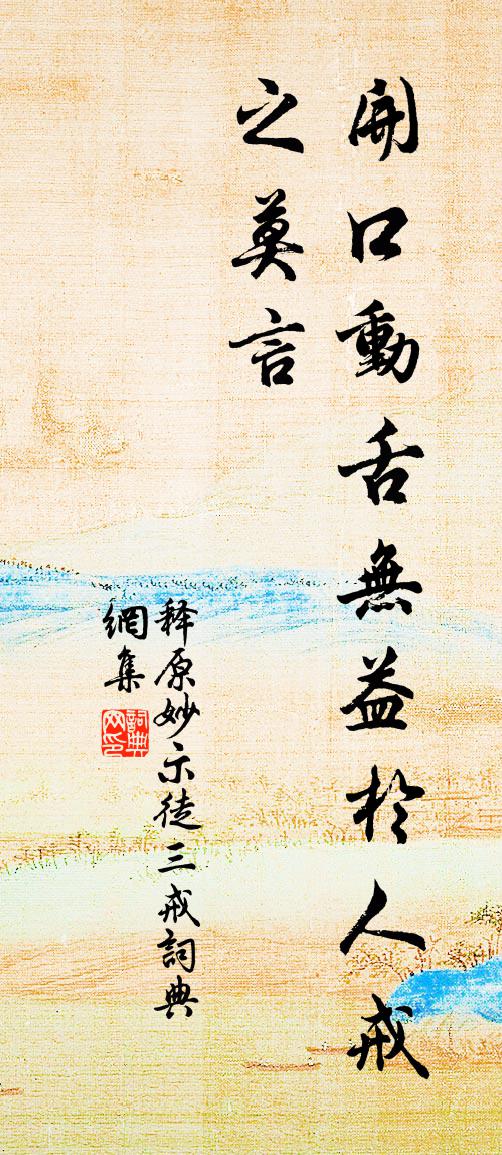 開口動舌無益於人戒
之莫言
释原妙示徒三戒詞典
網集
詞典
网印